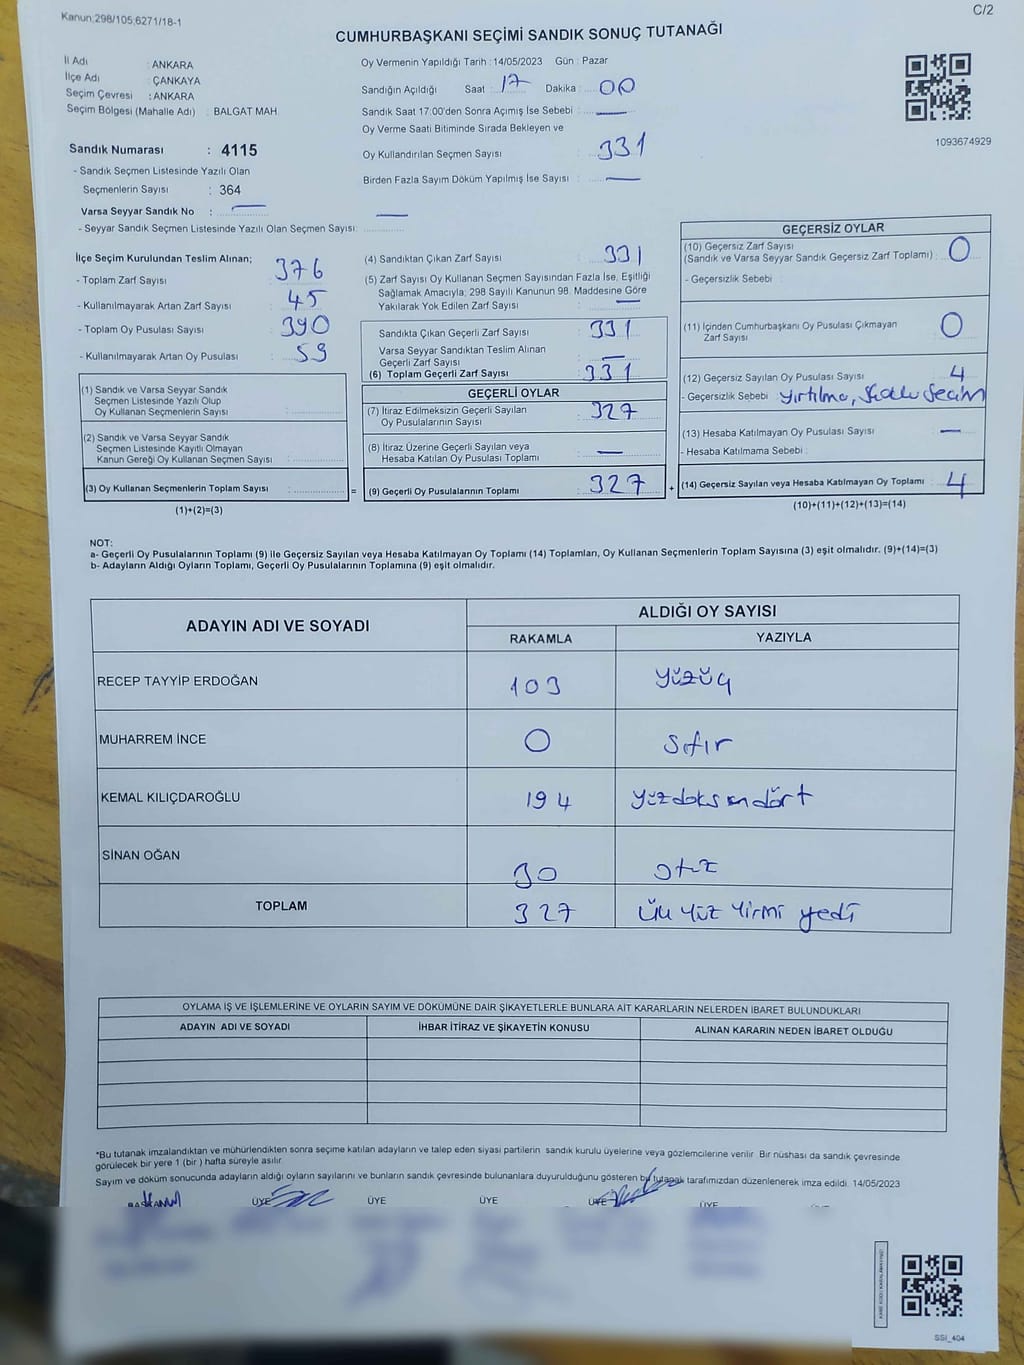 Kanun:298/105,6271/18-1
C/2
CUMHURBAŞKANI SEÇİMİ SANDIK SONUÇ TUTANAĞI
İl Adı : ANKARA
İlçe Adı : ÇANKAYA
Seçim Çevresi : ANKARA
Seçim Bölgesi (Mahalle Adı) : BALGAT MAH
Sandık Numarası : 4115
- Sandık Seçmen Listesinde Yazılı Olan
Seçmenlerin Sayısı : 364
Varsa Seyyar Sandık No : —
- Seyyar Sandık Seçmen Listesinde Yazılı Olan Seçmen Sayısı: —
Oy Vermenin Yapıldığı Tarih : 14/05/2023 Gün : Pazar
Sandığın Açıldığı Saat : 17 Dakika : 00
Sandık Saat 17:00'den Sonra Açımış İse Sebebi : —
Oy Verme Saati Bitiminde Sırada Bekleyen ve
Oy Kullandırılan Seçmen Sayısı : 331
Birden Fazla Sayım Döküm Yapılmış İse Sayısı : —
1093674929
İlçe Seçim Kurulundan Teslim Alınan;
- Toplam Zarf Sayısı : 376
- Kullanılmayarak Artan Zarf Sayısı : 45
- Toplam Oy Pusulası Sayısı : 390
- Kullanılmayarak Artan Oy Pusulası : 59
(1) Sandık ve Varsa Seyyar Sandık
Seçmen Listesinde Yazılı Olup
Oy Kullanan Seçmenlerin Sayısı :
(2) Sandık ve Varsa Seyyar Sandık
Seçmen Listesinde Kayıtlı Olmayan
Kanun Gereği Oy Kullanan Seçmen Sayısı :
(3) Oy Kullanan Seçmenlerin Toplam Sayısı : =
(1)+(2)=(3)
(4) Sandıktan Çıkan Zarf Sayısı : 331
(5) Zarf Sayısı Oy Kullanan Seçmen Sayısından Fazla İse, Eşitliği
Sağlamak Amacıyla; 298 Sayılı Kanunun 98. Maddesine Göre
Yakılarak Yok Edilen Zarf Sayısı : —
Sandıkta Çıkan Geçerli Zarf Sayısı : 331
Varsa Seyyar Sandıktan Teslim Alınan
Geçerli Zarf Sayısı : —
(6) Toplam Geçerli Zarf Sayısı : 331
GEÇERLİ OYLAR
(7) İtiraz Edilmeksizin Geçerli Sayılan
Oy Pusulalarının Sayısı : 327
(8) İtiraz Üzerine Geçerli Sayılan veya
Hesaba Katılan Oy Pusulası Toplamı : —
(9) Geçerli Oy Pusulalarının Toplamı : 327 +
GEÇERSİZ OYLAR
(10) Geçersiz Zarf Sayısı
(Sandık ve Varsa Seyyar Sandık Geçersiz Zarf Toplamı) : 0
- Geçersizlik Sebebi :
(11) İçinden Cumhurbaşkanı Oy Pusulası Çıkmayan
Zarf Sayısı : 0
(12) Geçersiz Sayılan Oy Pusulası Sayısı : 4
- Geçersizlik Sebebi : yırtılma, seçim
(13) Hesaba Katılmayan Oy Pusulası Sayısı : —
- Hesaba Katılmama Sebebi :
(14) Geçersiz Sayılan veya Hesaba Katılmayan Oy Toplamı : 4
(10)+(11)+(12)+(13)=(14)
NOT:
a- Geçerli Oy Pusulalarının Toplamı (9) ile Geçersiz Sayılan veya Hesaba Katılmayan Oy Toplamı (14) Toplamları, Oy Kullanan Seçmenlerin Toplam Sayısına (3) eşit olmalıdır. (9)+(14)=(3)
b- Adayların Aldığı Oyların Toplamı, Geçerli Oy Pusulalarının Toplamına (9) eşit olmalıdır.
ADAYIN ADI VE SOYADI
ALDIĞI OY SAYISI
RAKAMLA YAZIYLA
RECEP TAYYİP ERDOĞAN 103 yüzüç
MUHARREM İNCE 0 sıfır
KEMAL KILIÇDAROĞLU 194 yüzdoksandört
SİNAN OĞAN 30 otuz
TOPLAM 327 Üç yüz yirmi yedi
OYLAMA İŞ VE İŞLEMLERİNE VE OYLARIN SAYIM VE DÖKÜMÜNE DAİR ŞİKAYETLERLE BUNLARA AİT KARARLARIN NELERDEN İBARET BULUNDUKLARI
ADAYIN ADI VE SOYADI İHBAR İTİRAZ VE ŞİKAYETİN KONUSU ALINAN KARARIN NEDEN İBARET OLDUĞU
*Bu tutanak imzalandıktan ve mühürlendikten sonra seçime katılan adayların ve talep eden siyasi partilerin sandık kurulu üyelerine veya gözlemcilerine verilir. Bir nüshası da sandık çevresinde
görülecek bir yere 1 (bir ) hafta süreyle asılır.
Sayım ve döküm sonucunda adayların aldığı oyların sayılarını ve bunların sandık çevresinde bulunanlara duyurulduğunu gösteren bu tutanak tarafımızdan düzenlenerek imza edildi. 14/05/2023
BAŞKAN ÜYE ÜYE ÜYE ÜYE ÜYE ÜYE
SSİ_404